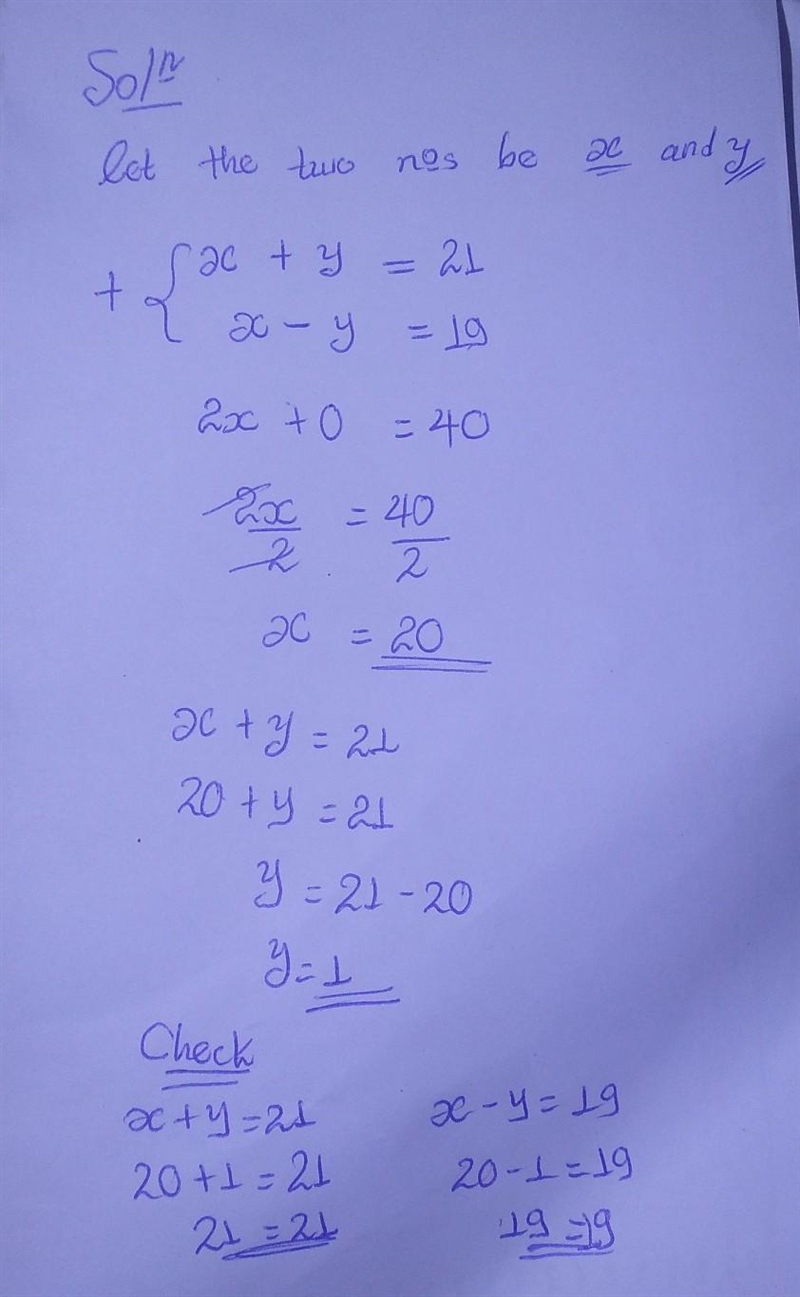 Solⁿ
let the two nos be x and y
+ { x + y = 21
x - y = 19
2x + 0 = 40
2x/2 = 40/2
x = 20
x + y = 21
20 + y = 21
y = 21 - 20
y = 1
Check
x + y = 21 x - y = 19
20 + 1 = 21 20 - 1 = 19
21 = 21 19 = 19